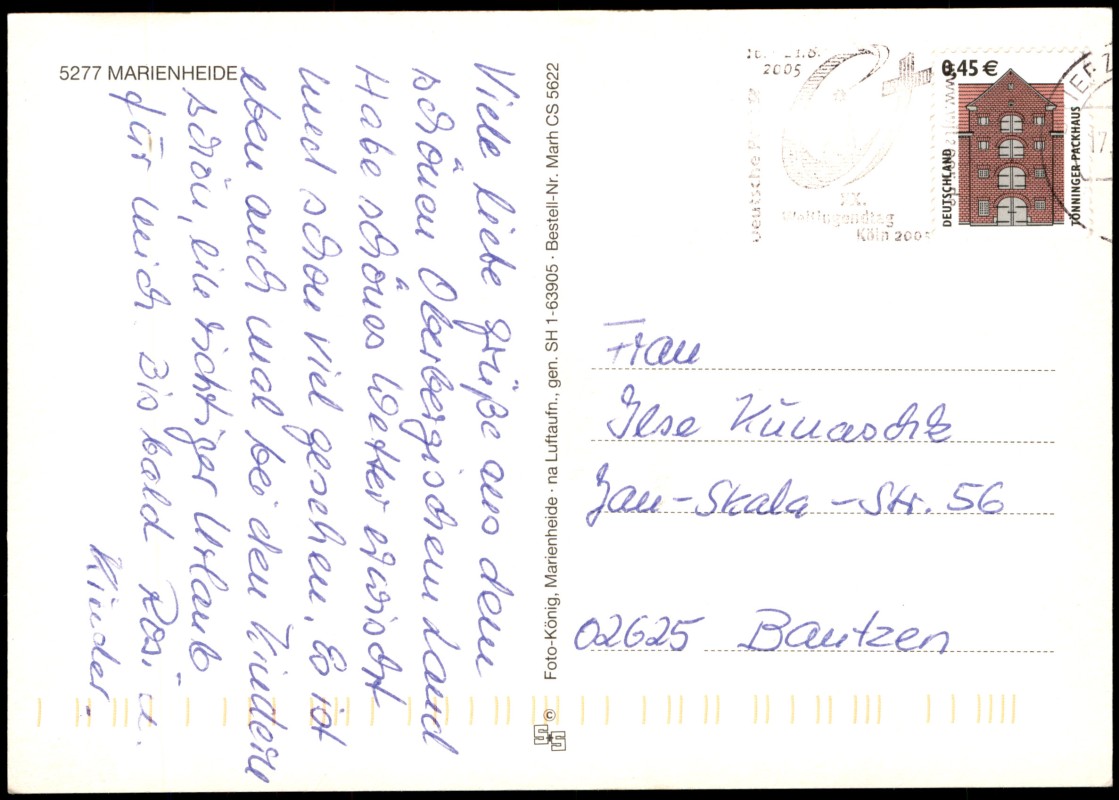 5277 MARIENHEIDE
Viele liebe Grüße aus dem
schönen Oberbergischen Land
Habe schönes Wetter erwischt
und schon viel gesehen. Es ist
eben auch mal bei den Kindern
schön, ein richtiger Urlaub
für mich. Bis bald Rosi u.
Kinder.
Foto-König, Marienheide · na Luftaufn., gen. SH 1-63905 · Bestell-Nr. Marh CS 5622
©
2005
XX.
Weltjugendtag
Köln 2005
0,45 €
DEUTSCHLAND
TÖNNINGER PACKHAUS
Frau
Ilse Kunaschk
Jan-Skala-Str. 56
02625 Bautzen